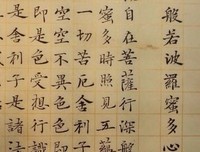 般若波羅蜜多心
自在菩薩行深般
蜜多時照見五蘊
一切苦厄舍利子
空空不異色色
即是色受想行識
是舍利子是諸法